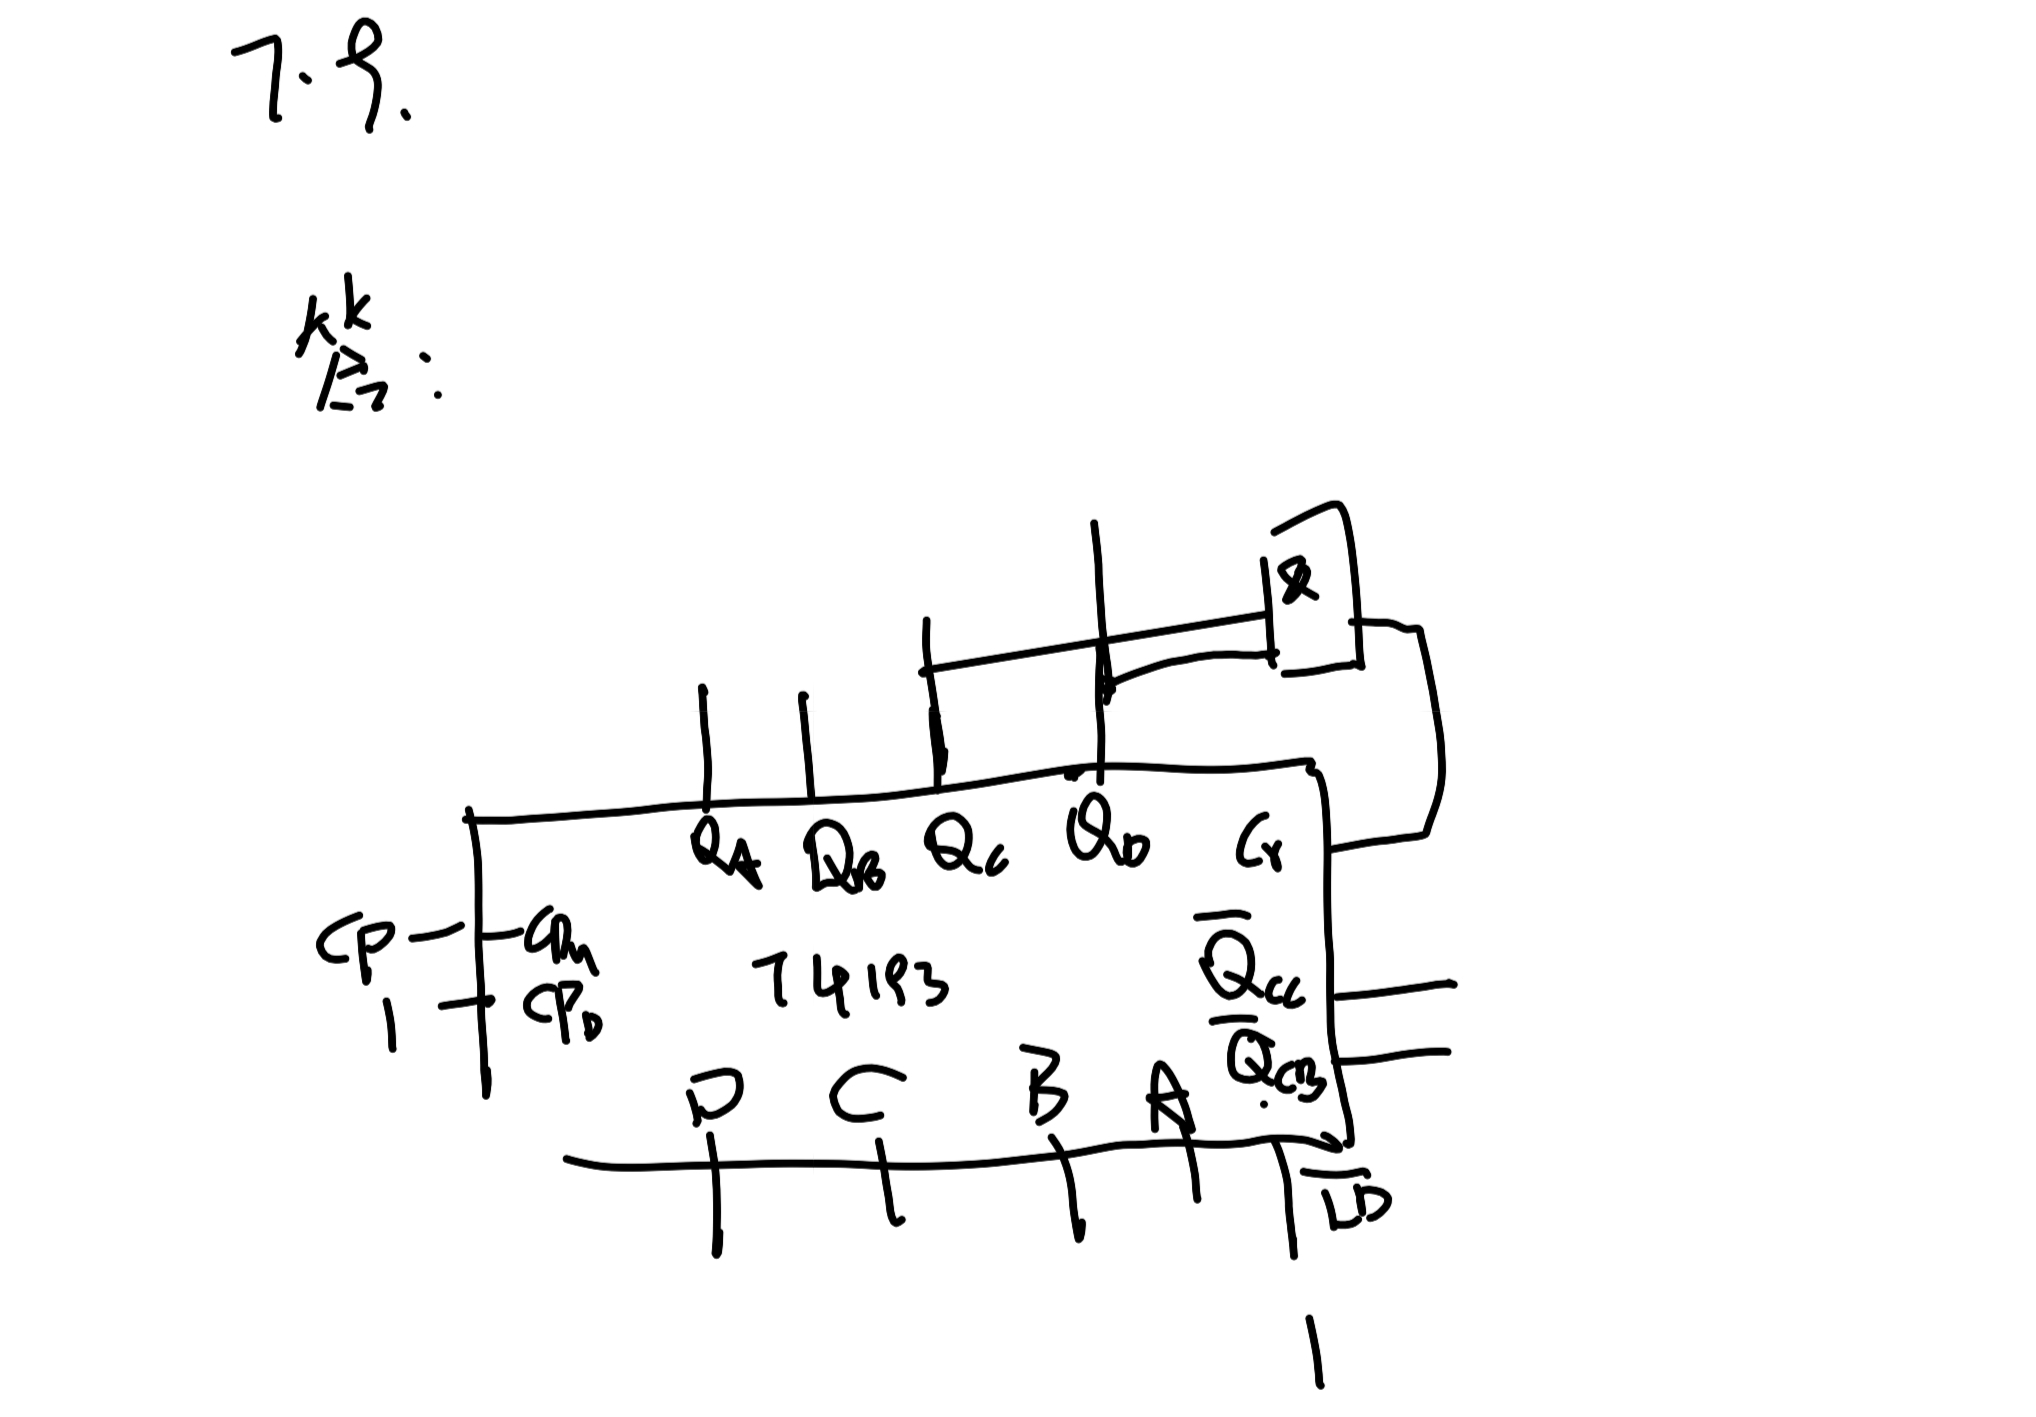 7.9.
答:
&
Q_A Q_B Q_C Q_D Cr
CP CP_u
74193
1 CP_D
\overline{Q}_{CC}
\overline{Q}_{CB}
D C B A
\overline{LD}
1